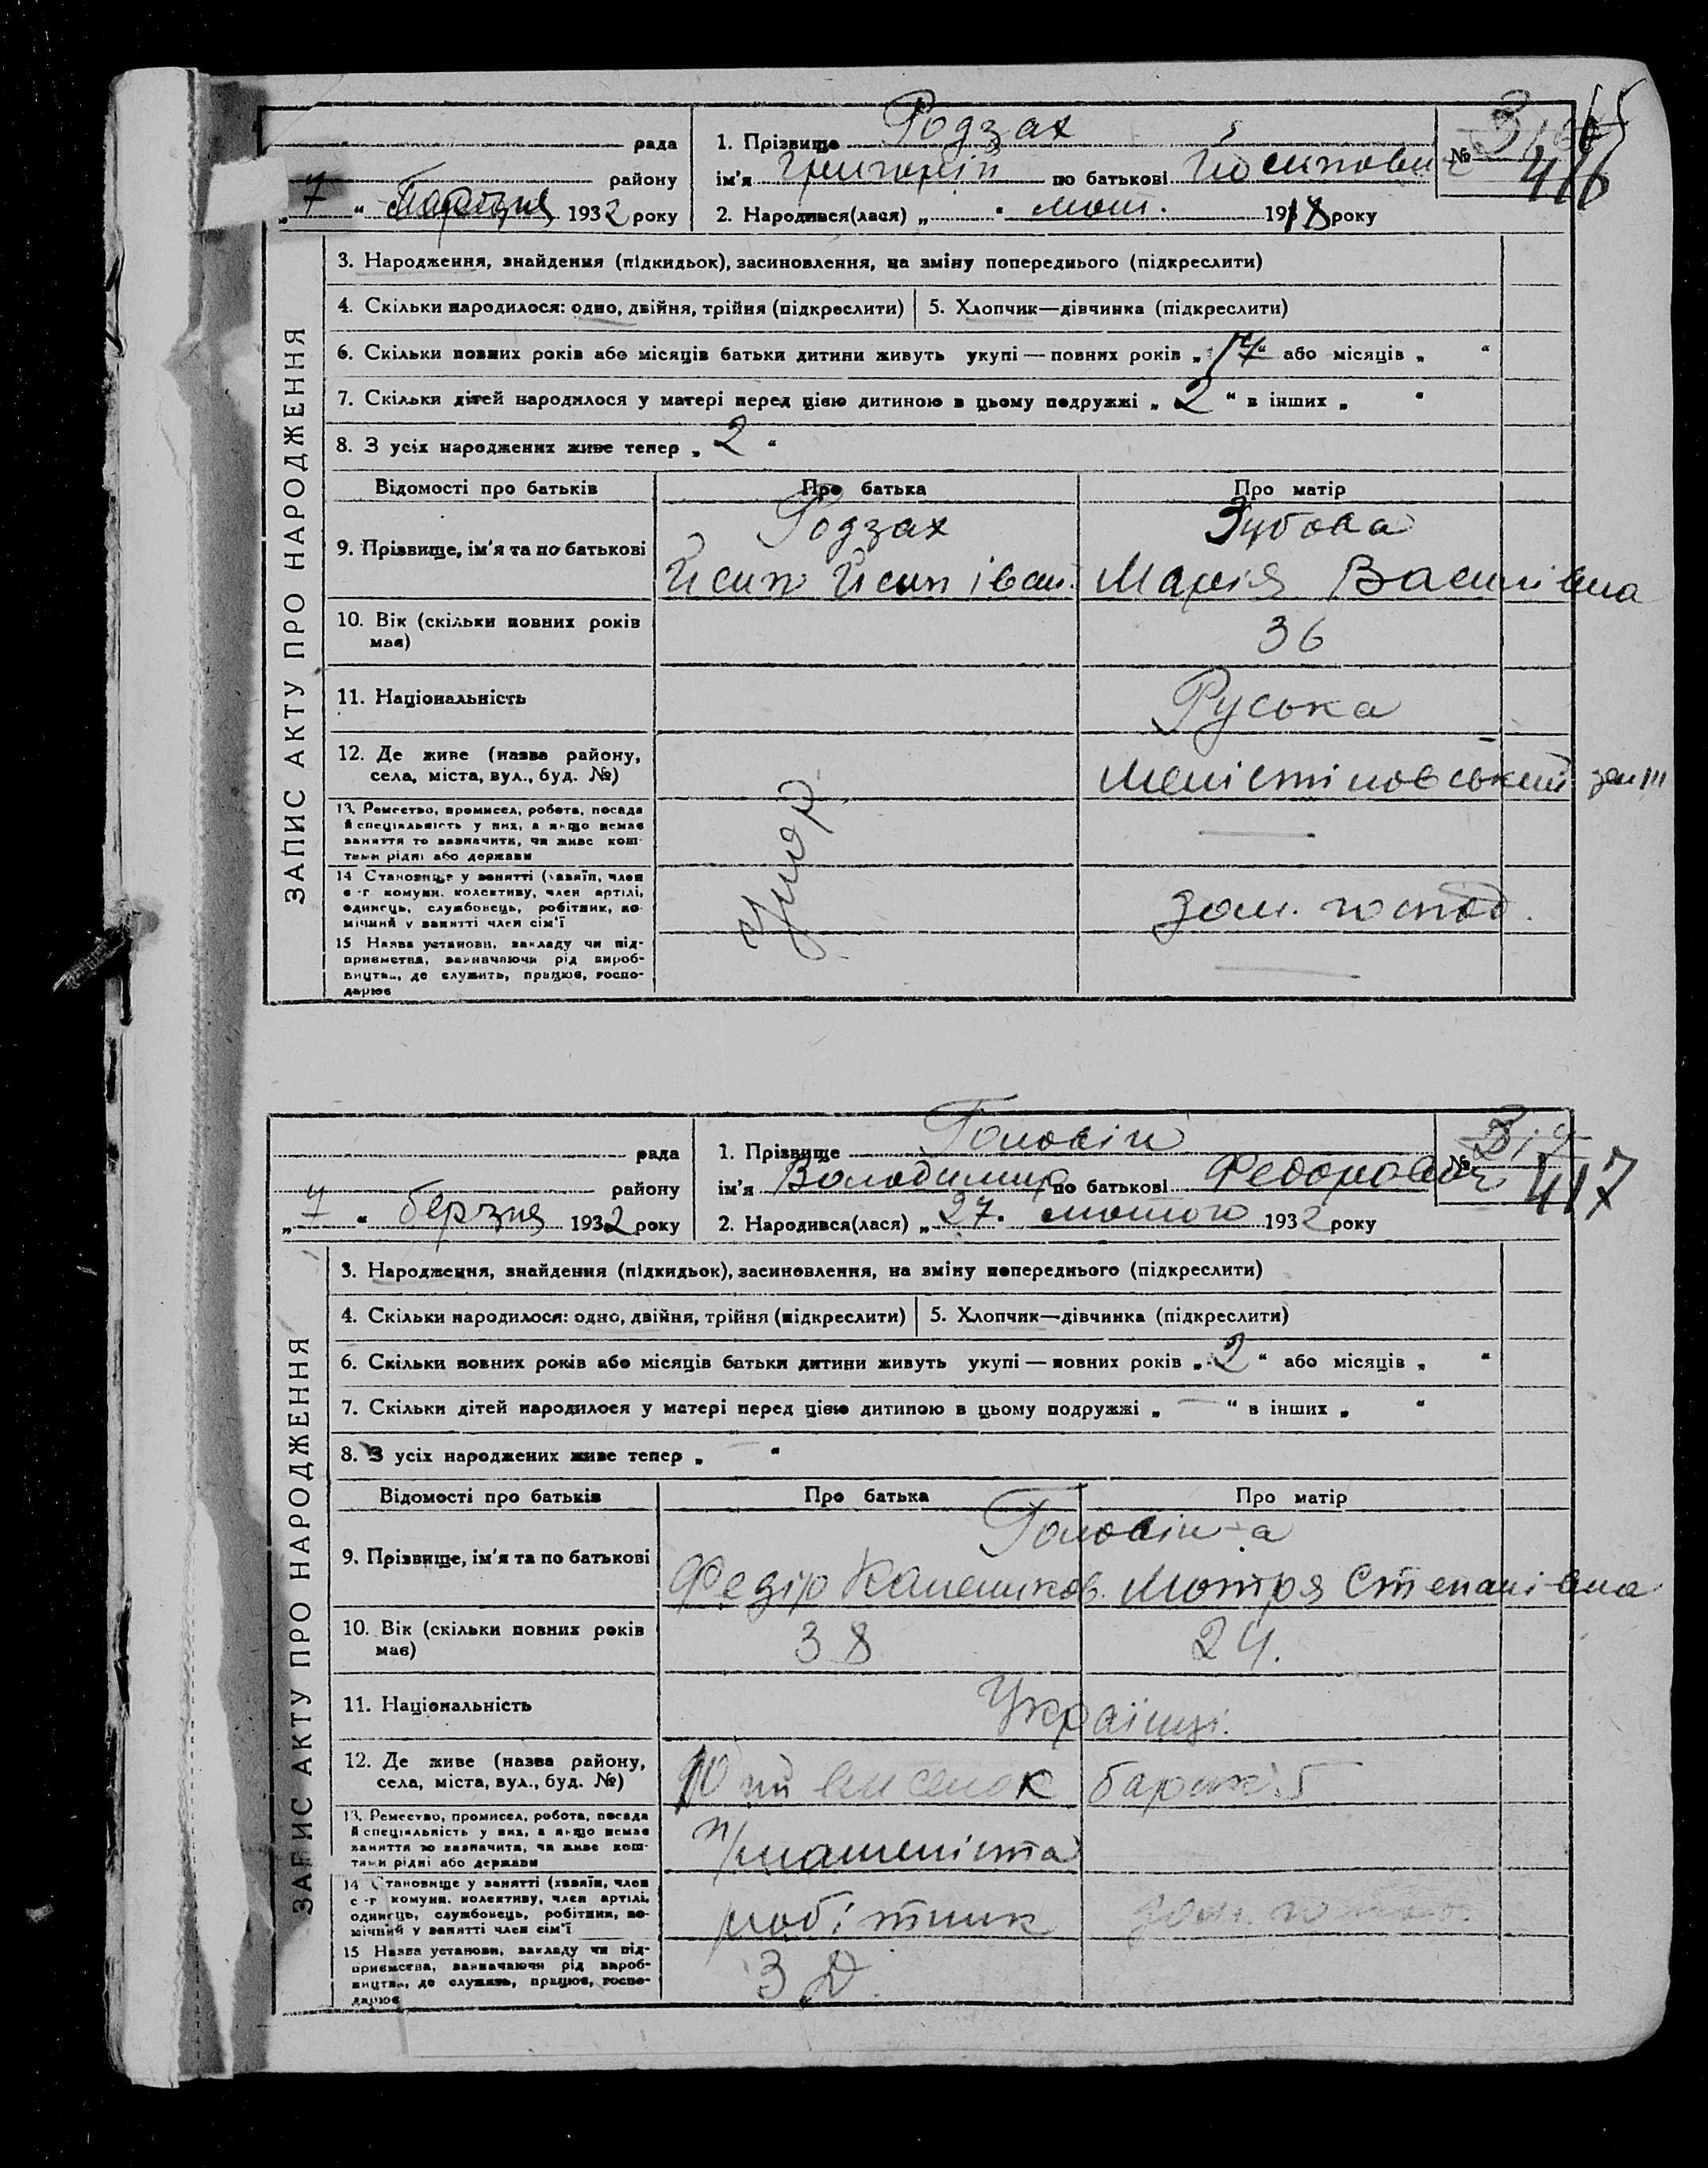 рада
району
„ 7 “ березня 1932 року
1. Прізвище Родзах
ім'я Григорій по батькові Йосипович
2. Народився(лася) „ “ 1918 року
№ 416
ЗАПИС АКТУ ПРО НАРОДЖЕННЯ
3. Народження, знайдення (підкидьок), засиновлення, на зміну попереднього (підкреслити)
4. Скільки народилося: одно, двійня, трійня (підкреслити) 5. Хлопчик—дівчинка (підкреслити)
6. Скільки повних років або місяців батьки дитини живуть укупі — повних років „ 17 “ або місяців „ “
7. Скільки дітей народилося у матері перед цією дитиною в цьому подружжі „ 2 “ в інших „ “
8. З усіх народжених живе тепер „ 2 “
Відомості про батьків Про батька Про матір
9. Прізвище, ім'я та по батькові
Родзах Зубова
Йсип Йсипів Марія Василівна
10. Вік (скільки повних років має)
36
11. Національність
Руська
12. Де живе (назва району, села, міста, вул., буд. №)
13. Ремество, промисел, робота, посада й спеціяльність у них, а якщо немає заняття то зазначити, чи живе коштами рідні або держави
14 Становище у занятті (хазяїн, член с-г комуни, колективу, член артілі, одинець, службовець, робітник, помічний у занятті член сім'ї
дом. господ.
15 Назва установи, закладу чи підприємства, зазначаючи рід виробництва, де служить, працює, господарює
Умер
рада
району
„ 7 “ березня 1932 року
1. Прізвище Головін
ім'я Володимир по батькові Федорович
2. Народився(лася) „ 27 “ лютого 1932 року
№ 417
ЗАПИС АКТУ ПРО НАРОДЖЕННЯ
3. Народження, знайдення (підкидьок), засиновлення, на зміну попереднього (підкреслити)
4. Скільки народилося: одно, двійня, трійня (підкреслити) 5. Хлопчик—дівчинка (підкреслити)
6. Скільки повних років або місяців батьки дитини живуть укупі — повних років „ 2 “ або місяців „ “
7. Скільки дітей народилося у матері перед цією дитиною в цьому подружжі „ — “ в інших „ “
8. З усіх народжених живе тепер „ — “
Відомості про батьків Про батька Про матір
9. Прізвище, ім'я та по батькові
Головін-а
Федір Мотря Степанівна
10. Вік (скільки повних років має)
38 24.
11. Національність
Українці.
12. Де живе (назва району, села, міста, вул., буд. №)
10ий виселок барак 5
13. Ремество, промисел, робота, посада й спеціяльність у них, а якщо немає заняття то зазначити, чи живе коштами рідні або держави
п/машеніста
14 Становище у занятті (хазяїн, член с-г комуни, колективу, член артілі, одинець, службовець, робітник, помічний у занятті член сім'ї
робітник дом. господ.
15 Назва установи, закладу чи підприємства, зазначаючи рід виробництва, де служить, працює, господарює
З Д.